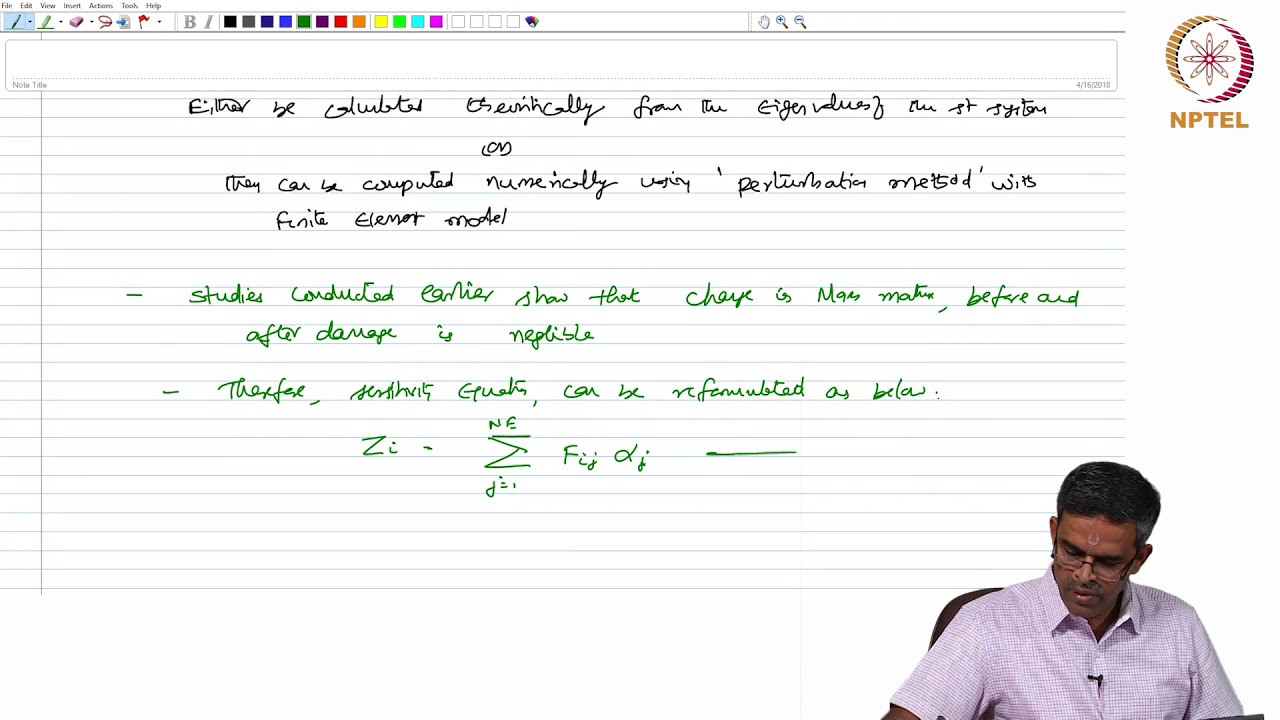 File Edit View Insert Actions Tools Help
B I
Note Title
4/16/2018
NPTEL
Either be calculated theoritically from the Eigen values of the st system
(or)
They can be computed numerically using 'perturbation method' with
finite Element model
- studies conducted earlier show that change in Mass matrix, before and
after damage is neglible
- Therefore, sensitivity Equation, can be reformulated as below:
Zi - NE Σ j=1 Fij αj